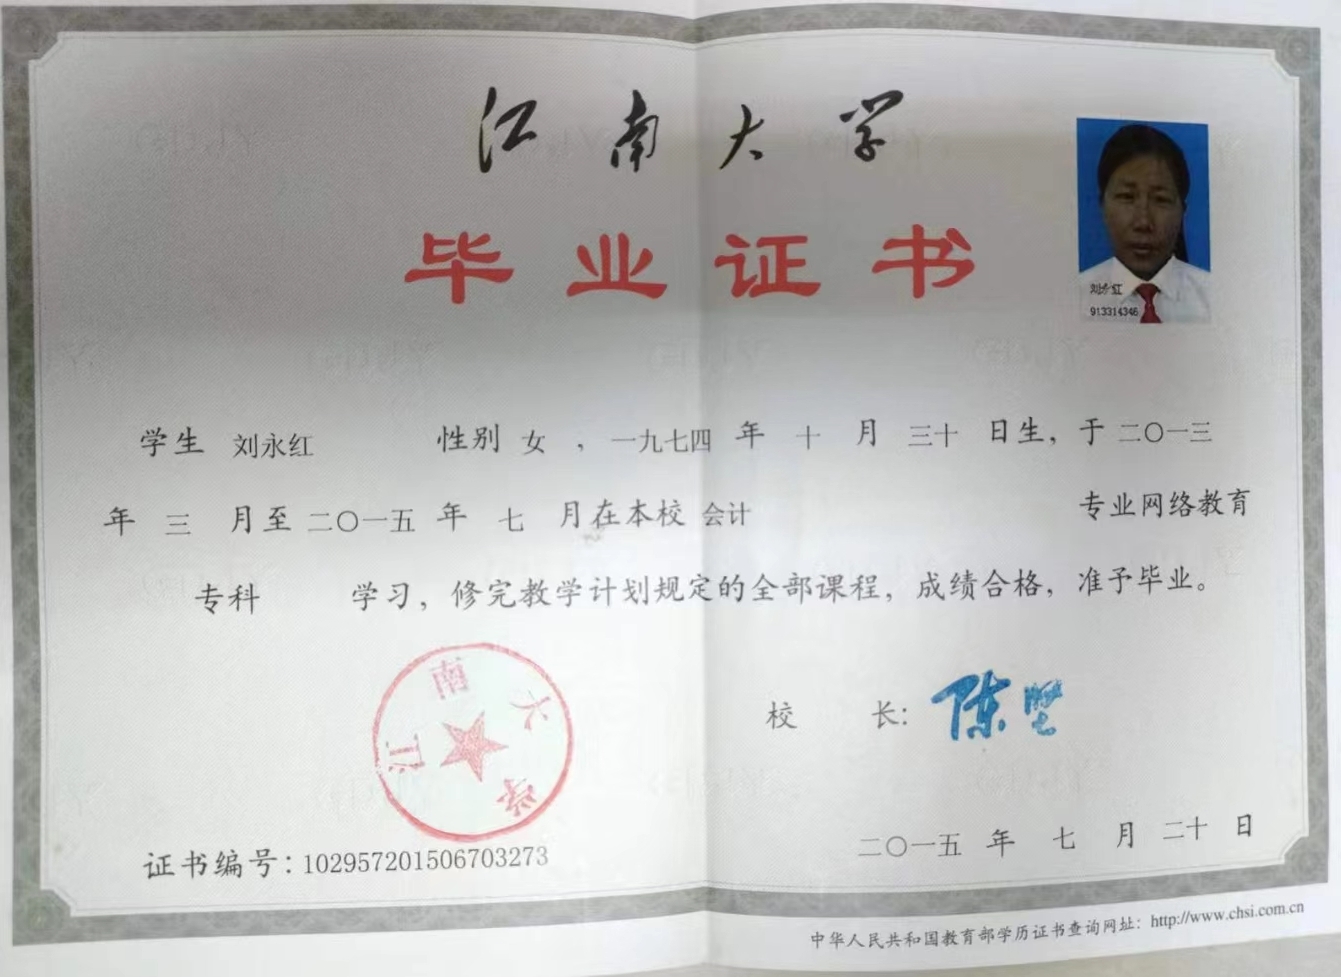 江南大学
毕业证书
刘永红
913314346
学生 刘永红 性别 女 ，一九七四 年 十 月 三十 日生，于 二〇一三
年 三 月至 二〇一五 年 七 月在本校 会计 专业网络教育
专科 学习，修完教学计划规定的全部课程，成绩合格，准予毕业。
江南大学
校 长：陈坚
证书编号：102957201506703273
二〇一五 年 七 月 二十 日
中华人民共和国教育部学历证书查询网址：http://www.chsi.com.cn